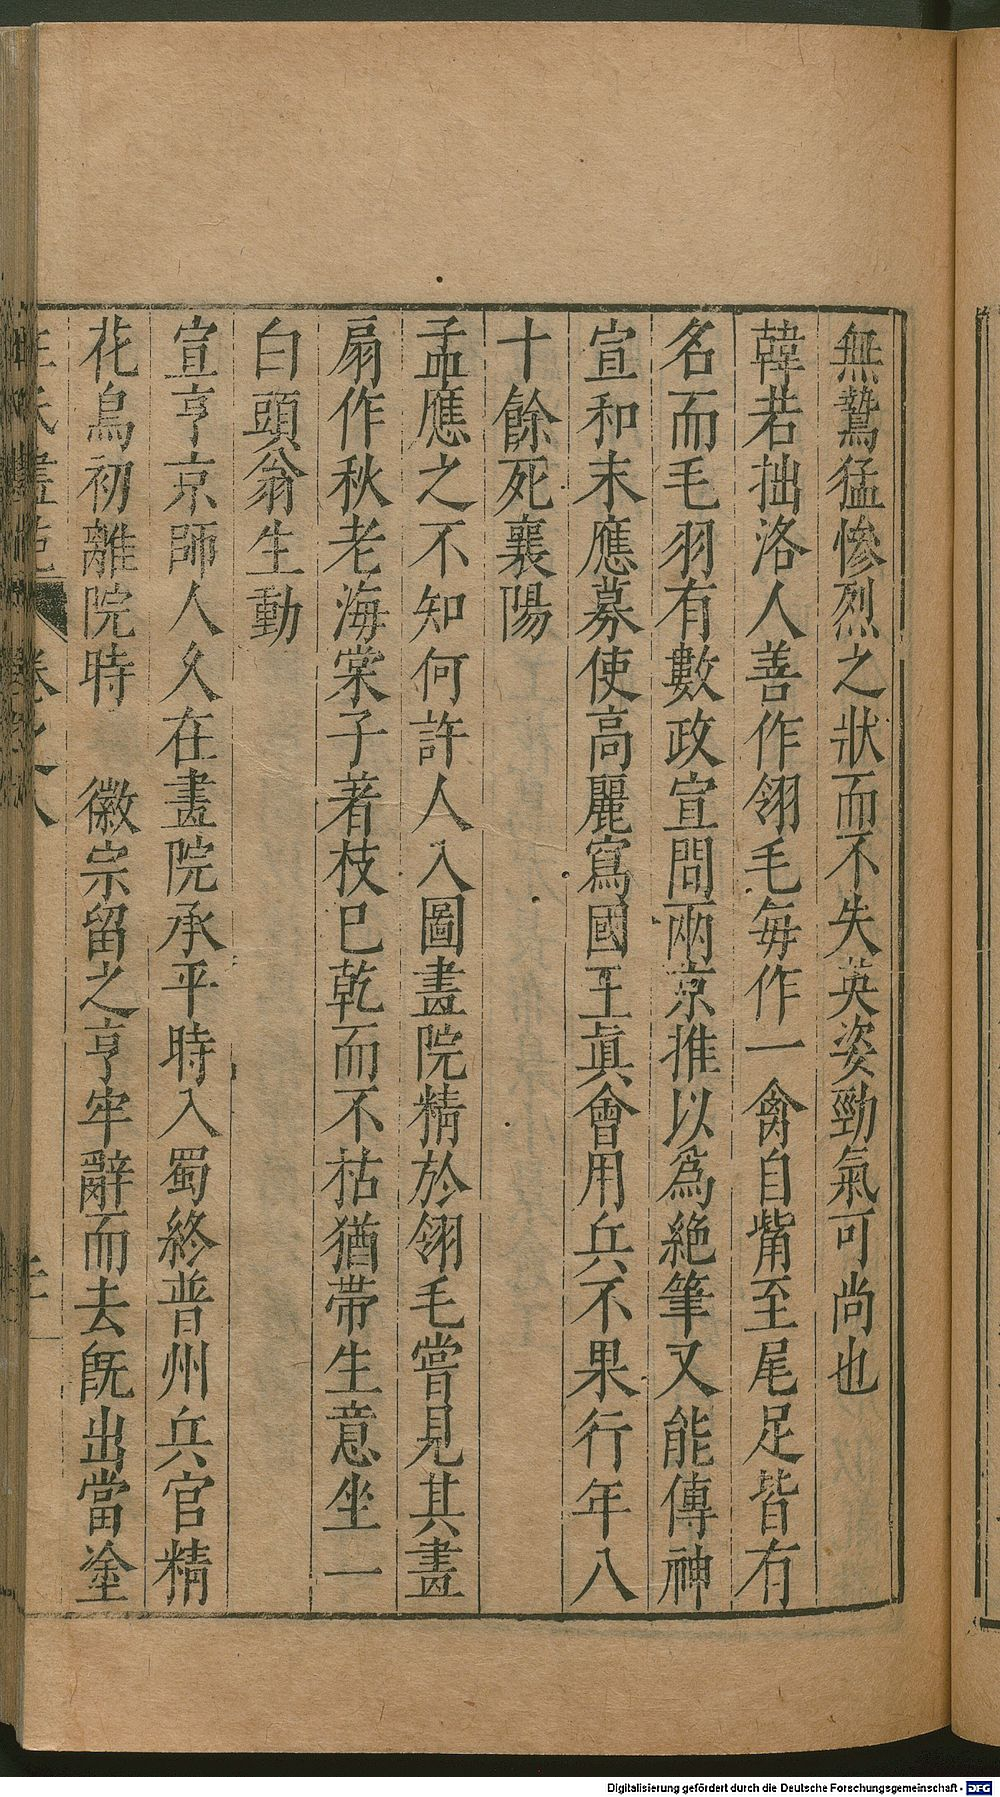 無鷙猛慘烈之狀而不失英姿勁氣可尚也
韓若拙洛人善作翎毛每作一禽自觜至尾足皆有
名而毛羽有數政宣問兩京推以爲絶筆又能傳神
宣和末應募使高麗寫國王眞會用兵不果行年八
十餘死襄陽
孟應之不知何許人入圖畫院精於翎毛嘗見其畫
扇作秋老海棠子著枝巳乾而不枯猶帶生意坐一
白頭翁生動
宣亨京師人久在畫院承平時入蜀終普州兵官精
花鳥初離院時 徽宗留之亨牢辭而去旣出當塗
卷之八
Digitalisierung gefördert durch die Deutsche Forschungsgemeinschaft - DFG